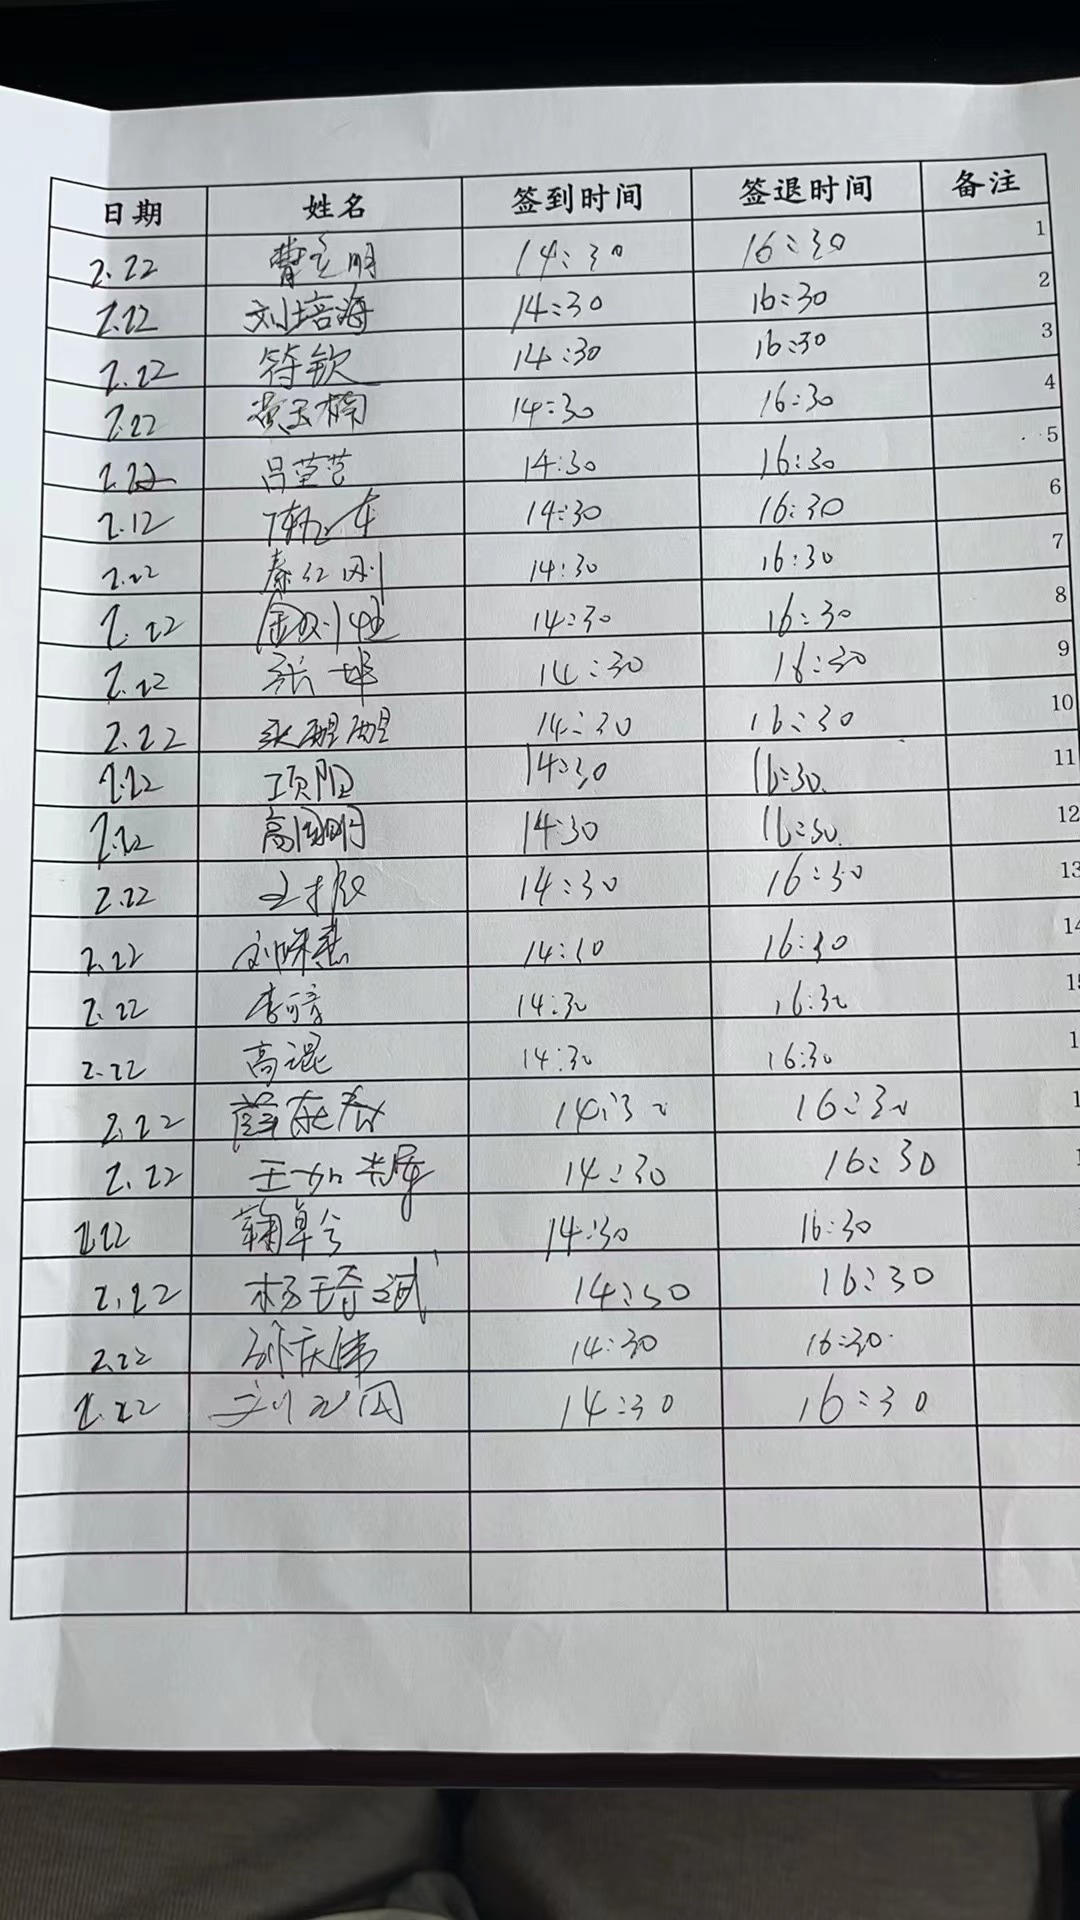 日期 姓名 签到时间 签退时间 备注
2.22 14:30 16:30 1
2.22 刘培海 14:30 16:30 2
2.22 符钦 14:30 16:30 3
2.22 黄玉楠 14:30 16:30 4
2.22 吕莹莹 14:30 16:30 5
2.12 14:30 16:30 6
2.22 秦红刚 14:30 16:30 7
2.22 14:30 16:30 8
2.22 张坤 14:30 16:30 9
2.22 张醒醒 14:30 16:30 10
2.22 项阳 14:30 16:30 11
2.22 高国明 14:30 16:30 12
2.22 14:30 16:30 13
2.22 14:30 16:30 14
2.22 14:30 16:30 15
2.22 高混 14:30 16:30 1
2.22 14:30 16:30 1
2.22 14:30 16:30 1
2.22 蔺卓兮 14:30 16:30
2.22 14:30 16:30
2.22 孙庆伟 14:30 16:30
2.22 14:30 16:30